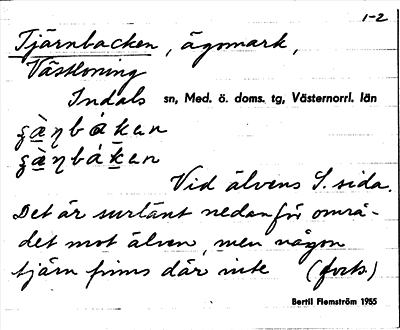 1-2
Tjärnbacken, ägomark,
Västloning
Indals sn, Med. ö. doms. tg, Västernorrl. län
Vid älvens S. sida.
Det är surlänt nedanför områ-
det mot älven, men någon
tjärn finns där inte (forts)
Bertil Flemström 1955